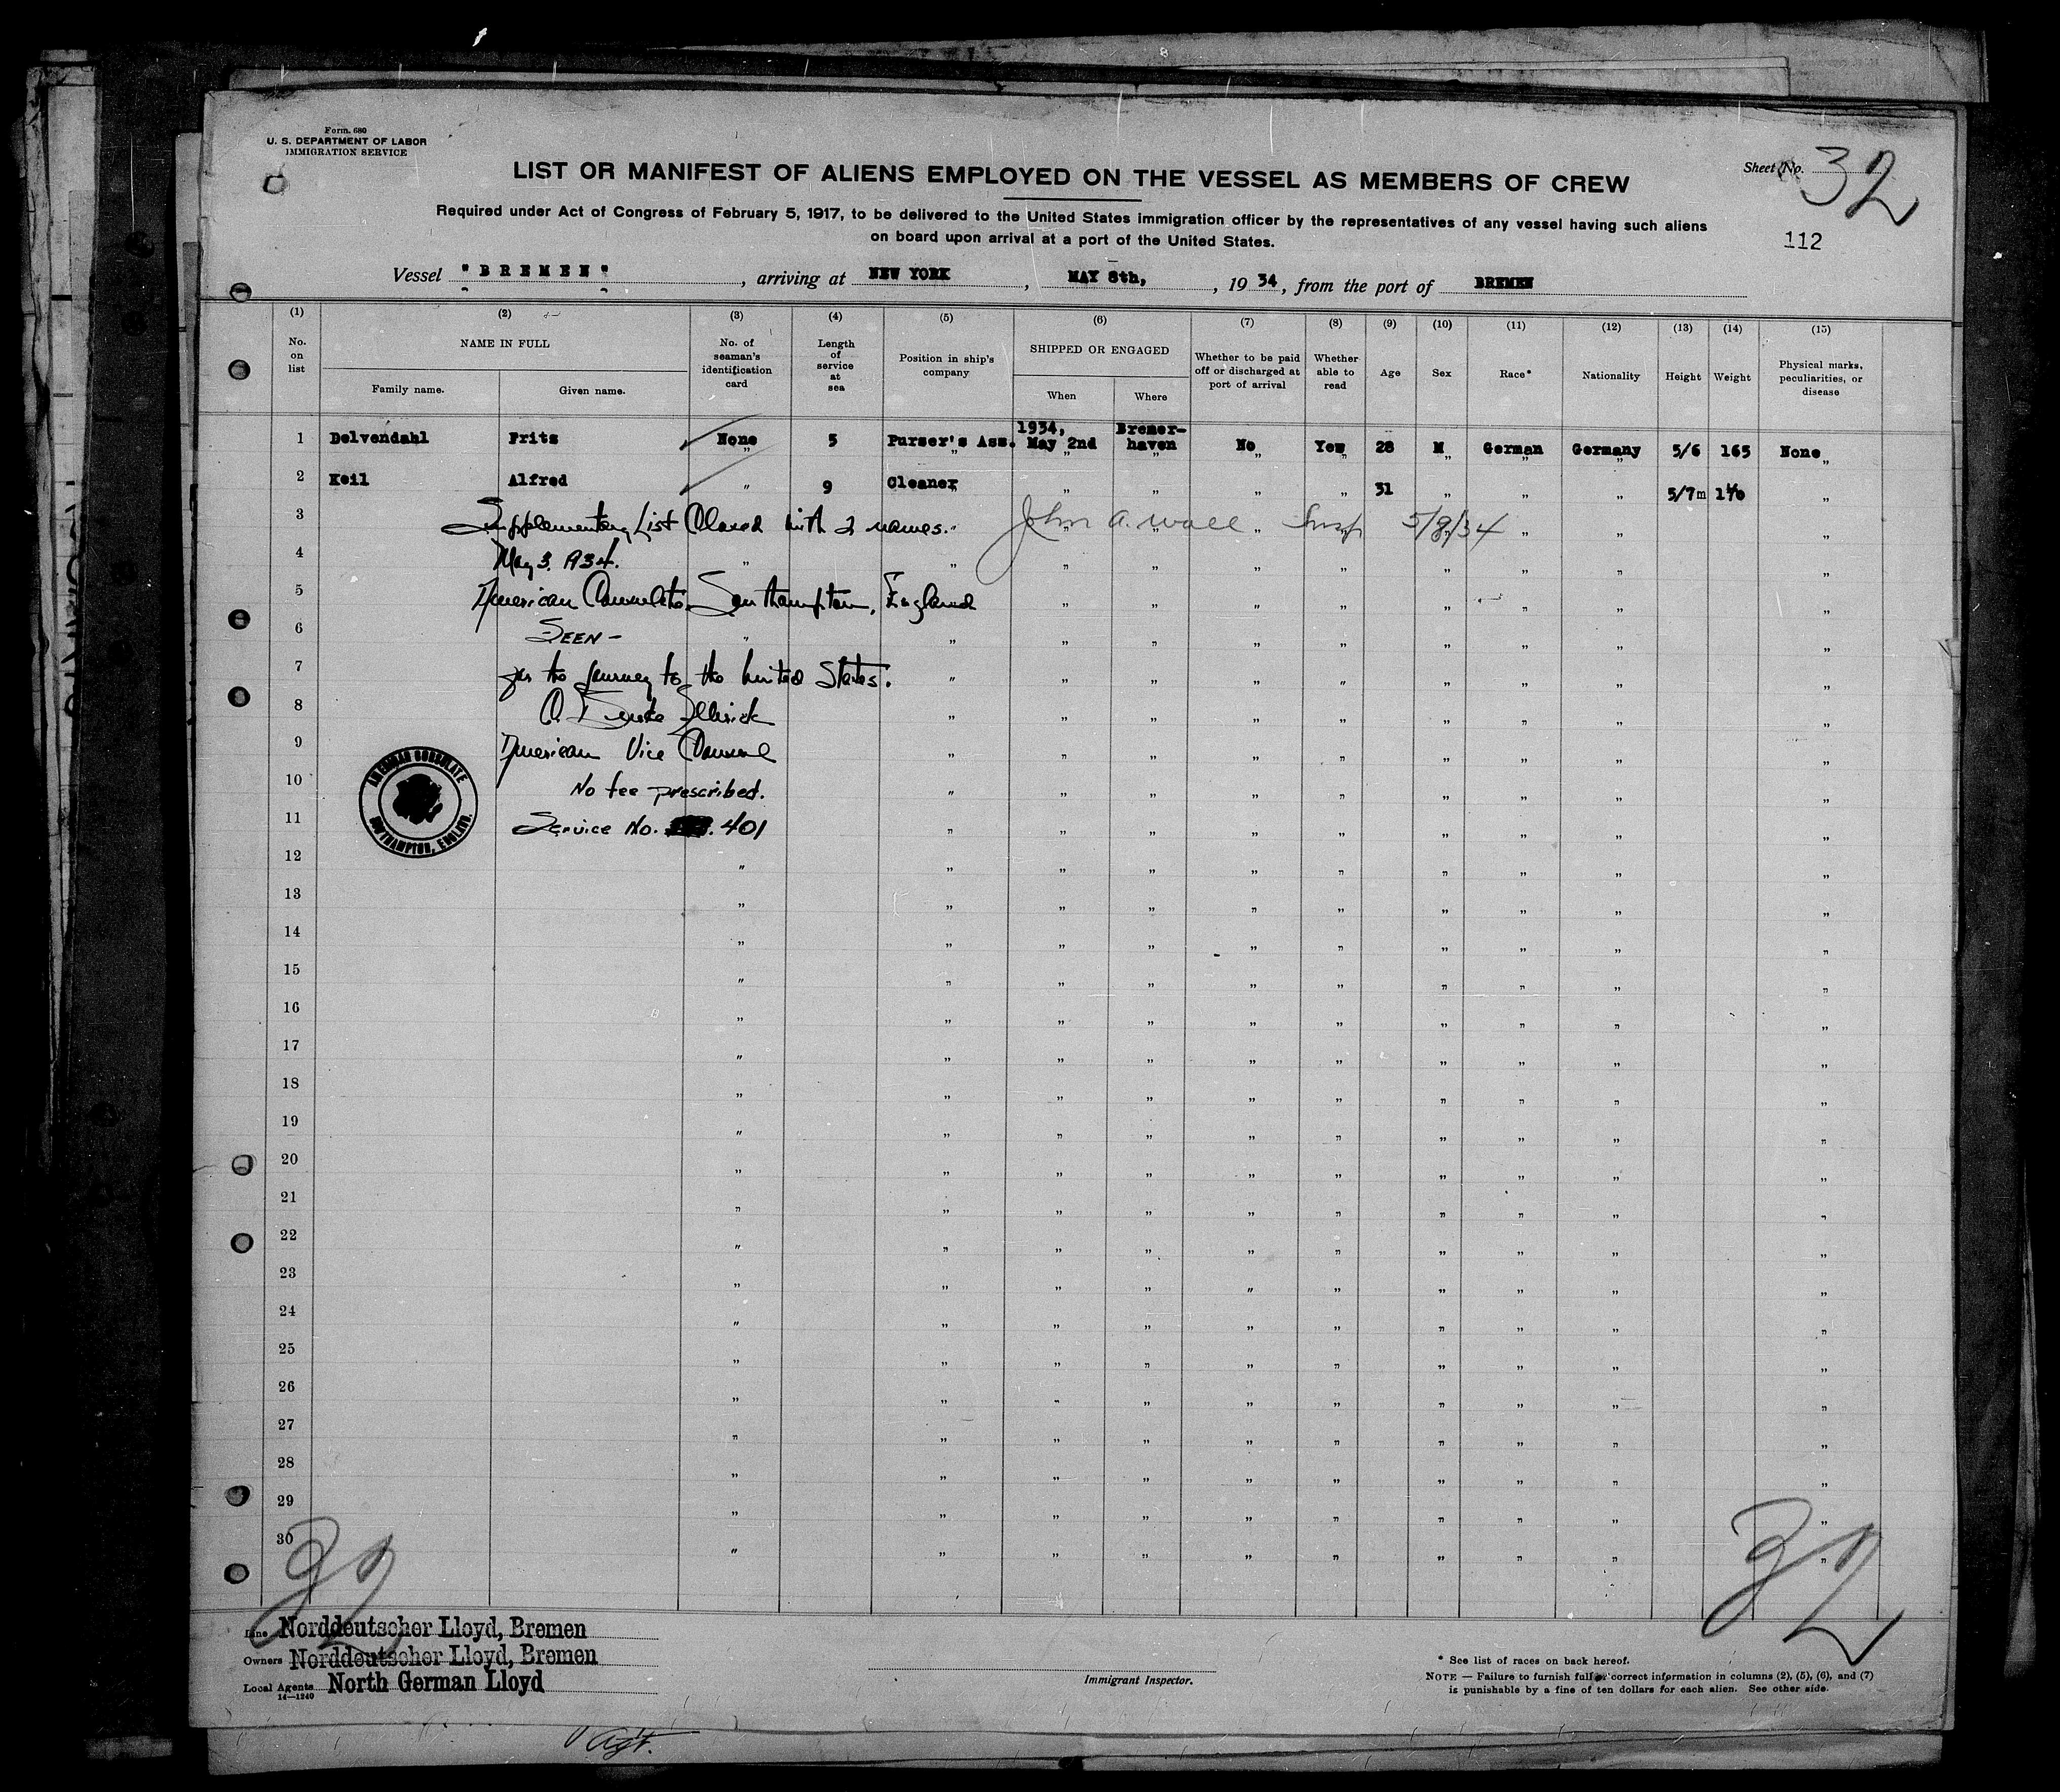 Form. 680
U. S. DEPARTMENT OF LABOR
IMMIGRATION SERVICE
Sheet No. 32
LIST OR MANIFEST OF ALIENS EMPLOYED ON THE VESSEL AS MEMBERS OF CREW
Required under Act of Congress of February 5, 1917, to be delivered to the United States immigration officer by the representatives of any vessel having such aliens
on board upon arrival at a port of the United States.
112
Vessel "BREMEN", arriving at NEW YORK, MAY 8th, , 1934, from the port of BREMEN
(1) (2) (3) (4) (5) (6) (7) (8) (9) (10) (11) (12) (13) (14) (15)
No. on list NAME IN FULL Family name. Given name. No. of seaman's identification card Length of service at sea Position in ship's company SHIPPED OR ENGAGED When Where Whether to be paid off or discharged at port of arrival Whether able to read Age Sex Race* Nationality Height Weight Physical marks, peculiarities, or disease
1 Delvendahl Fritz None 5 Purser's Ass. 1934, May 2nd Bremer-haven No Yes 28 M German Germany 5/6 165 None
2 Keil Alfred " 9 Cleaner " " " " 31 " " " 5/7 "
3 Supplementary List Closed with 2 names. John A. Wall Insp 5/8/34
4 May 3. 1934.
5 American Consulate Southampton, England
6 SEEN -
7 for the journey to the United States.
8
9 American Vice Consul
10 No fee prescribed.
11 Service No. 401
AMERICAN CONSULATE
SOUTHAMPTON, ENGLAND.
12
13
14
15
16
17
18
19
20
21
22
23
24
25
26
27
28
29
30
32
32
Line Norddeutscher Lloyd, Bremen
Owners Norddeutscher Lloyd, Bremen
Local Agents North German Lloyd
14—1240
Immigrant Inspector.
* See list of races on back hereof.
NOTE — Failure to furnish full or correct information in columns (2), (5), (6), and (7)
is punishable by a fine of ten dollars for each alien. See other side.
Agt.